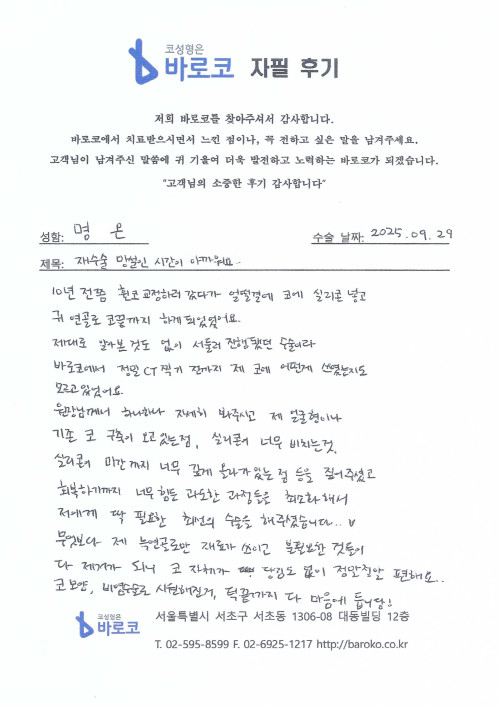 코성형은
바로코 자필 후기
저희 바로코를 찾아주셔서 감사합니다.
바로코에서 치료받으시면서 느낀 점이나, 꼭 전하고 싶은 말을 남겨주세요.
고객님이 남겨주신 말씀에 귀 기울여 더욱 발전하고 노력하는 바로코가 되겠습니다.
"고객님의 소중한 후기 감사합니다"
성함: 명 은 수술 날짜: 2025.09.29
제목: 재수술 망설인 시간이 아까워요..
10년 전쯤 휜코 교정하러 갔다가 얼떨결에 코에 실리콘 넣고
귀 연골로 코끝까지 하게 되었었어요.
제대로 알아본 것도 없이 서둘러 진행됐던 수술이라
바로코에서 정밀 CT 찍기 전까지 제 코에 어떤게 쓰였는지도
모르고 있었어요.
원장님께서 하나하나 자세히 봐주시고 제 얼굴형이나
기존 코 구축이 오고 있는 점, 실리콘이 너무 비치는 것,
실리콘이 미간까지 너무 길게 올라가 있는 점 등을 짚어주셨고
회복하기까지 너무 힘든 과도한 과정들을 최소화해서
저에게 딱 필요한 최선의 수술을 해주셨습니다..
무엇보다 제 늑연골로만 재료가 쓰이고 불필요한 것들이
다 제거가 되니 코 자체가 당김도 없이 정말 정말 편해요..
코 모양, 비염수술로 시원해진거, 턱끝까지 다 마음에 듭니당!
코성형은
바로코 서울특별시 서초구 서초동 1306-08 대동빌딩 12층
T. 02-595-8599 F. 02-6925-1217 http://baroko.co.kr